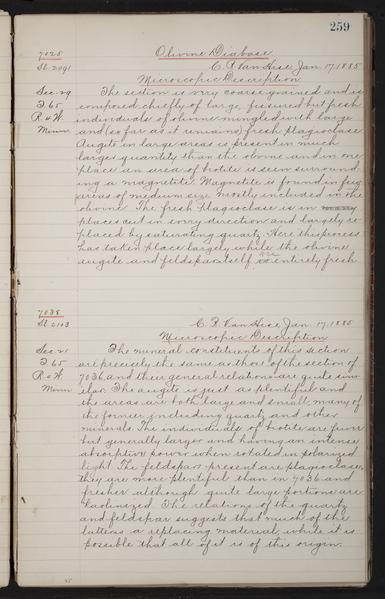 259
7025 Olivine Diabase
Sl. 2091 C. R. Van Hise, Jan. 17, 1885
Microscopic Description
Sec. 29 The section is very coarse grained and is
T. 65 composed chiefly of large, fissured but fresh
R. 4 W. individuals of olivine mingled with large
Minn. and (so far as it remains) fresh plagioclase.
Augite in large areas is present in much
larger quantity than the olivine and in one
place an area of biotite is seen surround-
ing a magnetite. Magnetite is found in few
areas of medium size mostly included in the
olivine. The fresh plagioclase is in
places cut in every direction and largely re-
placed by saturating quartz. Here this process
has taken place largely while the olivine
augite and feldspar itself are entirely fresh
7038
Sl. 2103 C. R. Van Hise, Jan. 17, 1885
Microscopic Description
Sec. 21 The mineral constituents of this section
T. 65 are precisely the same as those of the section of
R. 4 W. 7036, and their general relations are quite sim-
Minn. ilar. The augite is just as plentiful and
the areas are both large and small, many of
the former including quartz and other
minerals. The individuals of biotite are fewer
but generally larger and having an intense
absorptive power when rotated in polarized
light. The feldspars present are plagioclase,
they are more plentiful than in 7036 and
fresher although quite large portions are
kaolinized. The relations of the quartz
and feldspar suggests that much of the
latter is a replacing material, while it is
possible that all of it is of this origin.